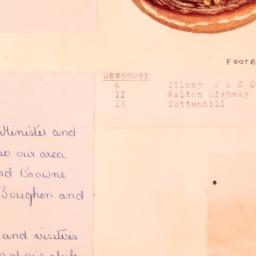 FOOTB
December
4 Tilney P & C C
11 Walton Highway
18 Tottenhill
Minister and
our area
Browne
Boughen and
and visitors
our club